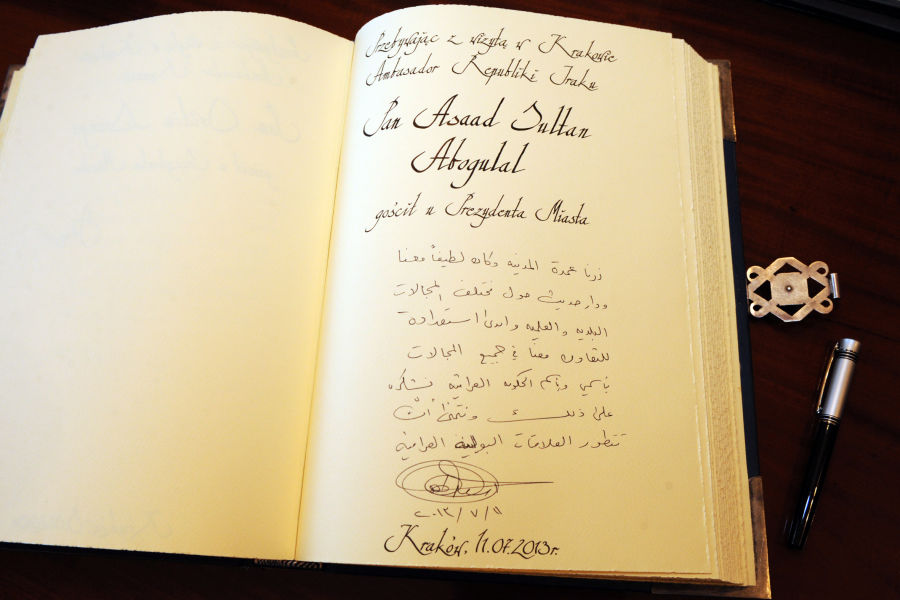 Przebywając z wizytą w Krakowie
Ambasador Republiki Iraku
Pan Asaad Sultan
Abogulal
gościł u Prezydenta Miasta
زرنا عمدة المدينه وكان لطيفاً معنا
ودار حديث حول مختلف المجالات
البلديه والعلميه وابدى استعداده
للتعاون معنا في جميع المجالات
باسمي وباسم الحكومه العراقيه نشكره
على ذلك ونتمنى أن
تتطور العلاقات البولنية العراقيه
٢٠١٣/٧/١١
Kraków, 11.07.2013r.